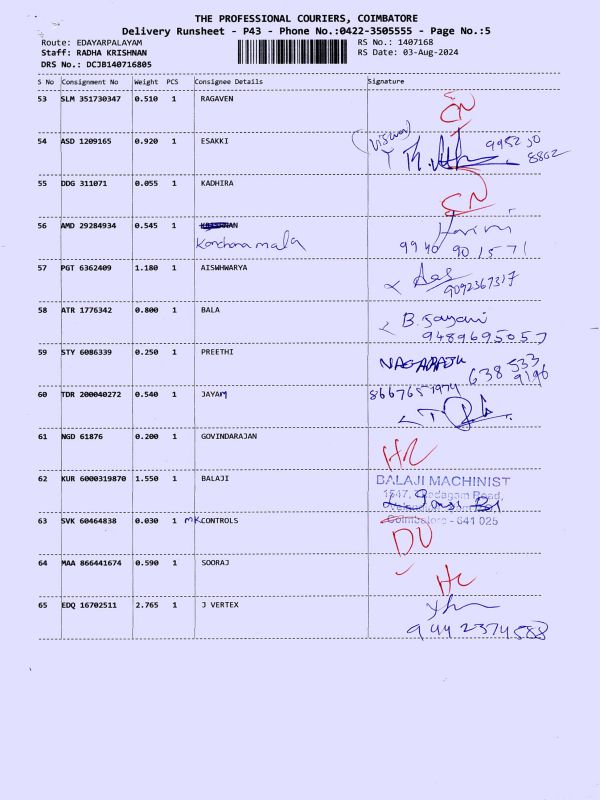 THE PROFESSIONAL COURIERS, COIMBATORE
Delivery Runsheet - P43 - Phone No.:0422-3505555 - Page No.:5
Route: EDAYARPALAYAM RS No.: 1407168
Staff: RADHA KRISHNAN RS Date: 03-Aug-2024
DRS No.: DCJB140716805
S No Consignment No Weight PCS Consignee Details Signature
53 SLM 351730347 0.510 1 RAGAVEN
54 ASD 1209165 0.920 1 ESAKKI
55 DDG 311071 0.055 1 KADHIRA
56 AMD 29284934 0.545 1 Harini
Kanchana mala 9940 901571
57 PGT 6362409 1.180 1 AISWHWARYA
9092367317
58 ATR 1776342 0.800 1 BALA B. Jayani
9489695057
59 STY 6086339 0.250 1 PREETHI NAGARAJU 638 533
9196
60 TDR 200040272 0.540 1 JAYAM 8667651974
61 NGD 61876 0.200 1 GOVINDARAJAN
HC
62 KUR 6000319870 1.550 1 BALAJI BALAJI MACHINIST
1547, Road,
63 SVK 60464838 0.030 1 MK CONTROLS Coimbatore - 641 025
64 MAA 866441674 0.590 1 SOORAJ
HC
65 EDQ 16702511 2.765 1 J VERTEX
9442374588